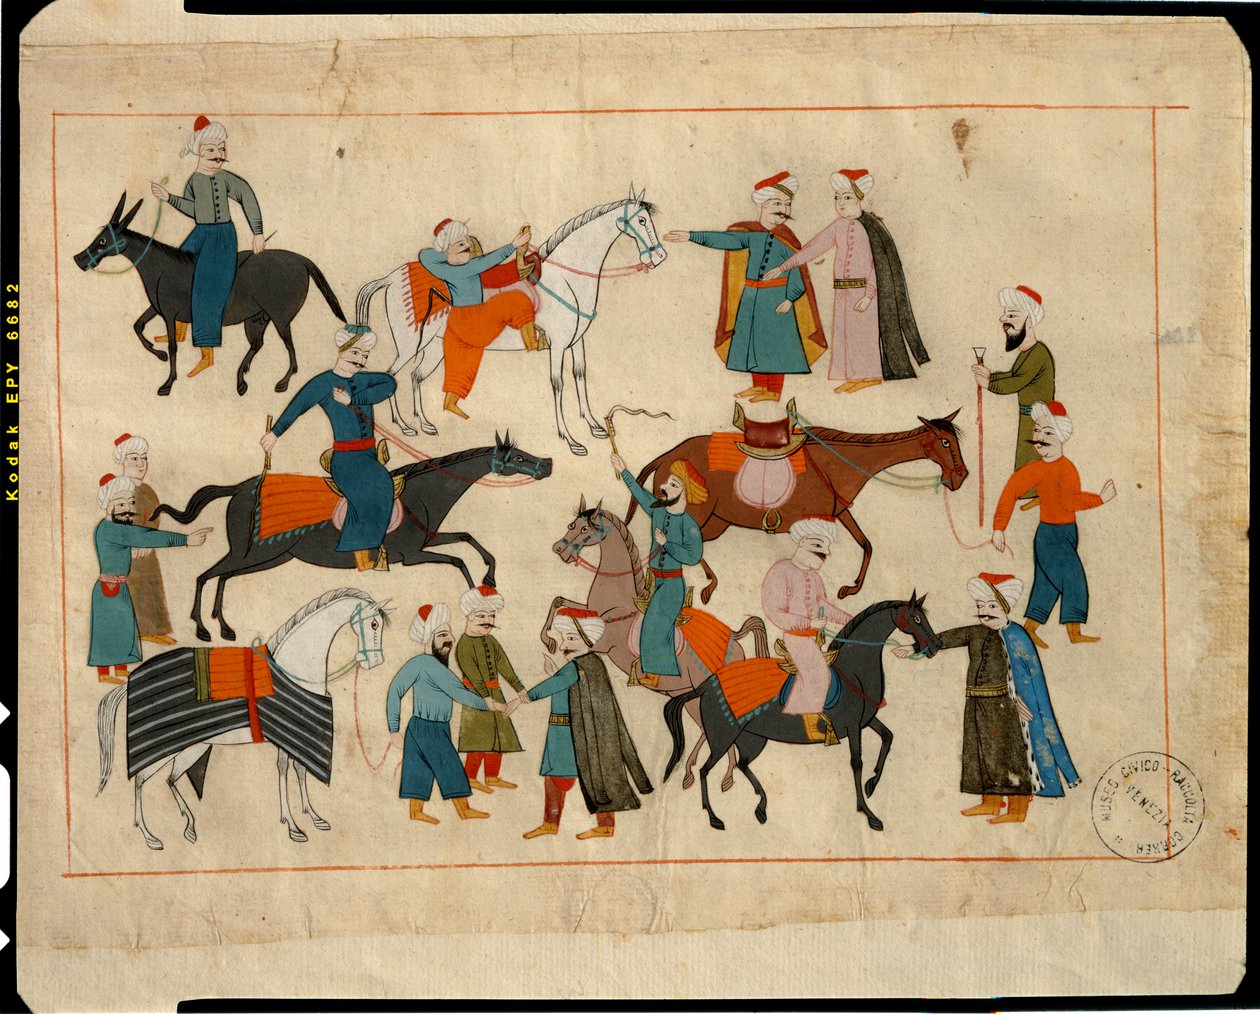 Kodak EPY 6682
MUSEO CIVICO - RACCOLTA CORRER
VENEZIA